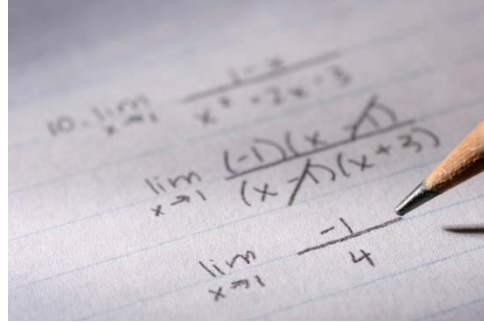 10. lim x→1 (1-x)/(x²+2x-3)
lim x→1 (-1)(x-1)/(x-1)(x+3)
lim x→1 -1/4